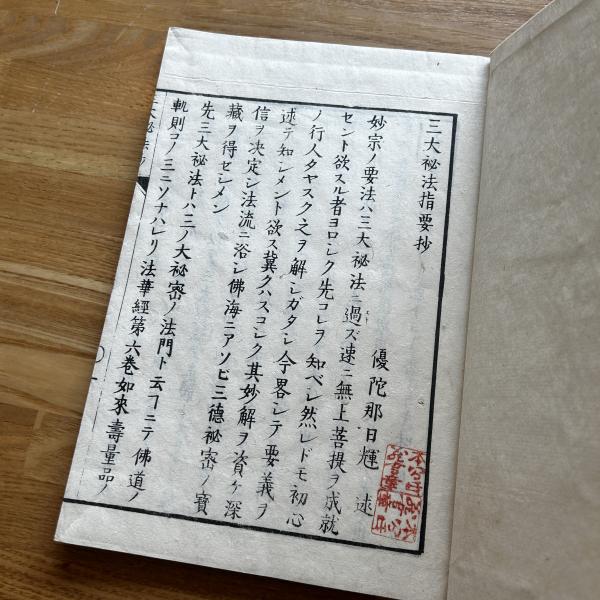 三大祕法指要抄
優陀那日輝 述
妙宗ノ要法ハ三大祕法ニ過ズ速ニ無上菩提ヲ成就
セント欲スル者ヨロシク先コレヲ知ベシ然レドモ初心
ノ行人タヤスク之ヲ解シガタシ今畧シテ要義ヲ
述テ知シメント欲ス冀クハスコシク其妙解ヲ資ケ深
信ヲ决定シ法流ニ浴シ佛海ニアソビ三德祕密ノ寶
藏ヲ得セシメン
先三大祕法トハ三ノ大祕密ノ法門ト云ヿニテ佛道ノ
軌則コノ三ニソナハレリ法華經第六卷如來壽量品ノ